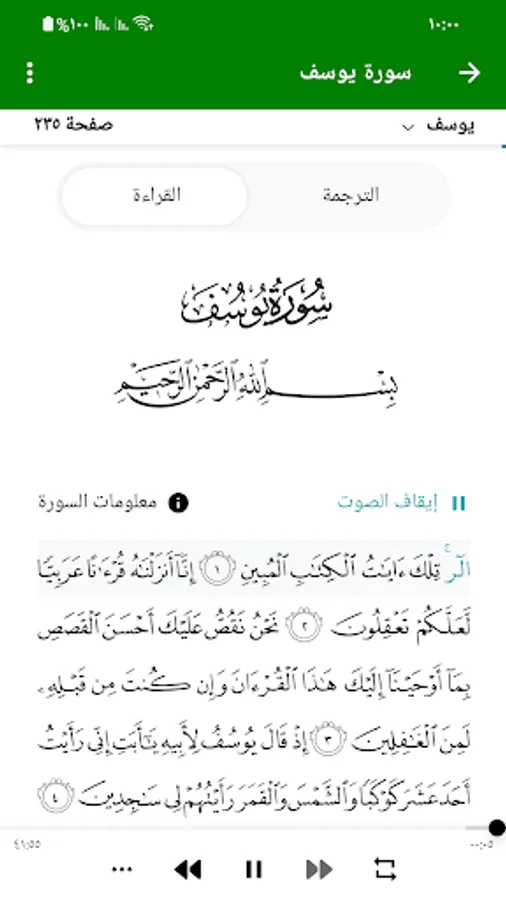 ١٠:٠٠ %١٠٠
سورة يوسف
يوسف صفحة ٢٣٥
الترجمة القراءة
سُورَةُ يُوسُفَ
بِسْمِ ٱللَّهِ ٱلرَّحْمَٰنِ ٱلرَّحِيمِ
إيقاف الصوت معلومات السورة
الٓرۚ تِلْكَ ءَايَٰتُ ٱلْكِتَٰبِ ٱلْمُبِينِ ١ إِنَّآ أَنزَلْنَٰهُ قُرْءَٰنًا عَرَبِيًّا
لَّعَلَّكُمْ تَعْقِلُونَ ٢ نَحْنُ نَقُصُّ عَلَيْكَ أَحْسَنَ ٱلْقَصَصِ
بِمَآ أَوْحَيْنَآ إِلَيْكَ هَٰذَا ٱلْقُرْءَانَ وَإِن كُنتَ مِن قَبْلِهِۦ
لَمِنَ ٱلْغَٰفِلِينَ ٣ إِذْ قَالَ يُوسُفُ لِأَبِيهِ يَٰٓأَبَتِ إِنِّي رَأَيْتُ
أَحَدَ عَشَرَ كَوْكَبًا وَٱلشَّمْسَ وَٱلْقَمَرَ رَأَيْتُهُمْ لِي سَٰجِدِينَ ٤
٠٠:٠٥ ٤١:٥٥